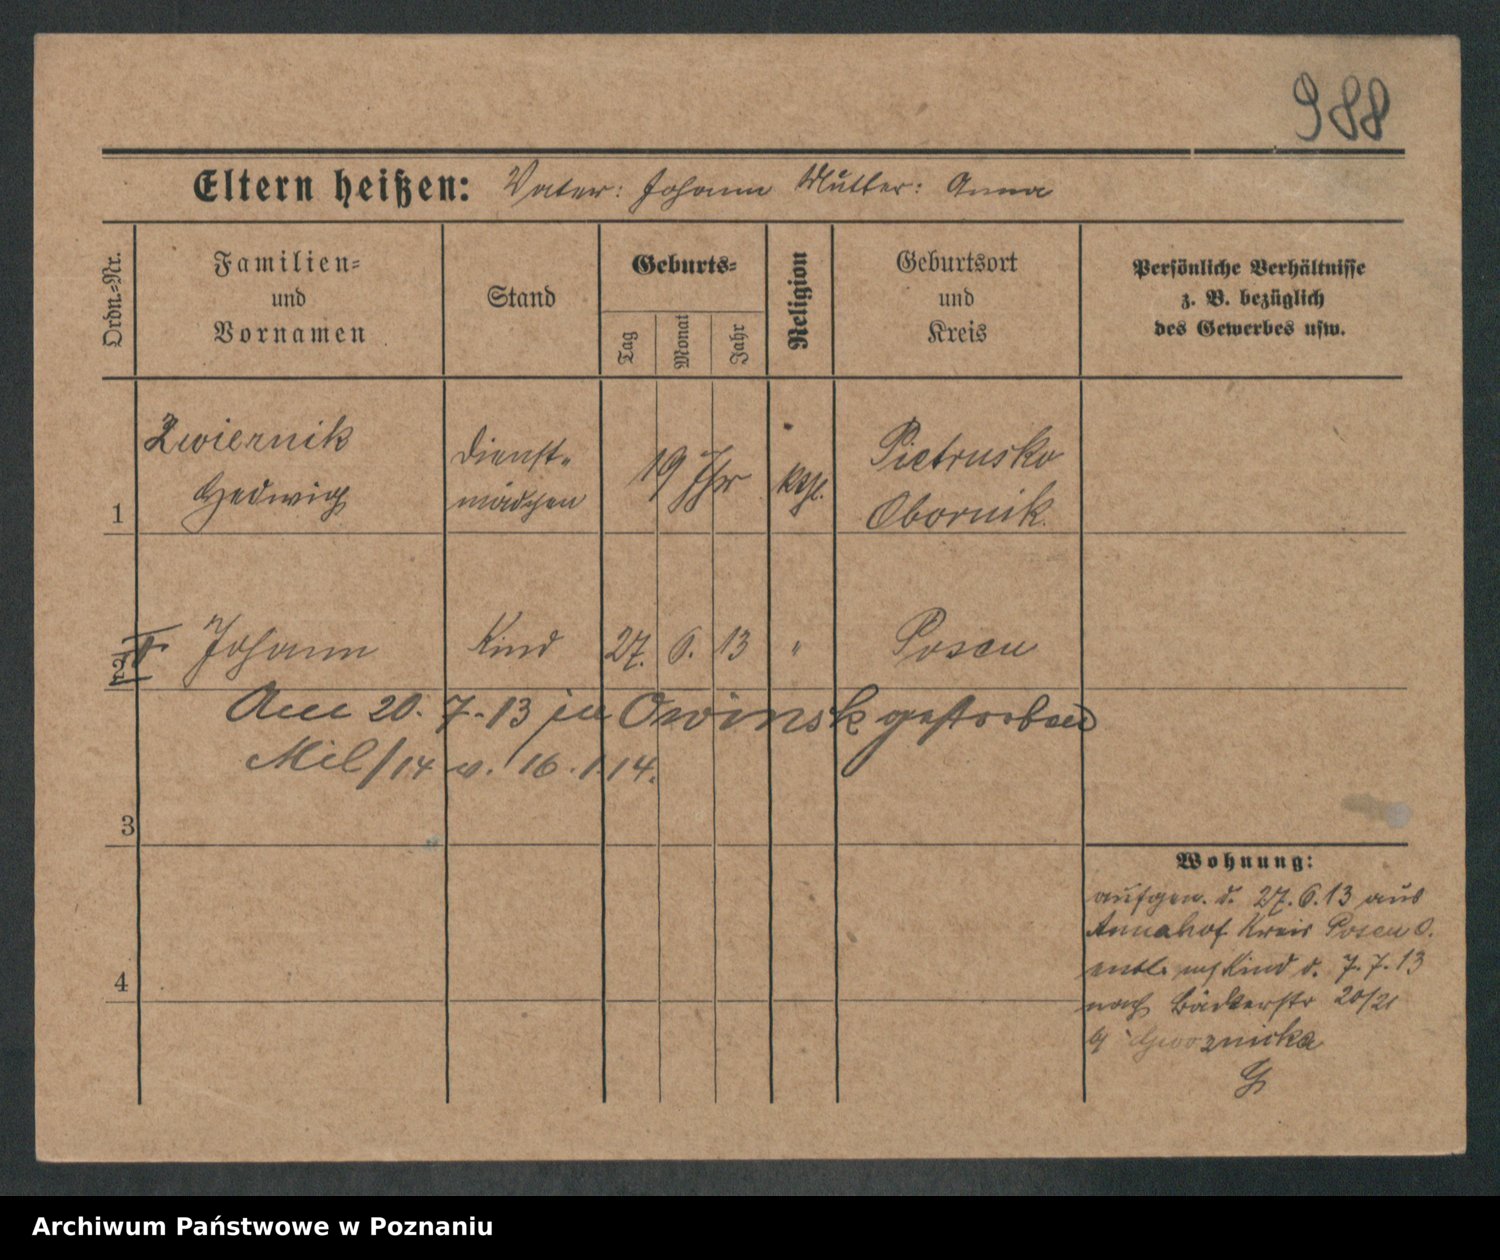 988
Eltern heißen: Vater: Johann Mutter: Anna
Ordn.-Nr.
Familien-
und
Vornamen
Stand
Geburts-
Tag
Monat
Jahr
Religion
Geburtsort
und
Kreis
Persönliche Verhältnisse
z. B. bezüglich
des Gewerbes usw.
1
Zwiernik
Hedwig
Dienst-
mädchen
19 Jhr
kth.
Pietrusko
Obornik.
2
Johann
Kind
27. 6. 13
"
Posen
Am 20. 7. 13 in Owinsk gestorben
Mil/14 v. 16.1.14.
3
4
Wohnung:
aufgen. d. 27.6.13 aus
Annahof Kreis Posen O.
entl. Kind d. 7.7.13
nach Bäckerstr 20/21
Gwoznicka
Archiwum Państwowe w Poznaniu